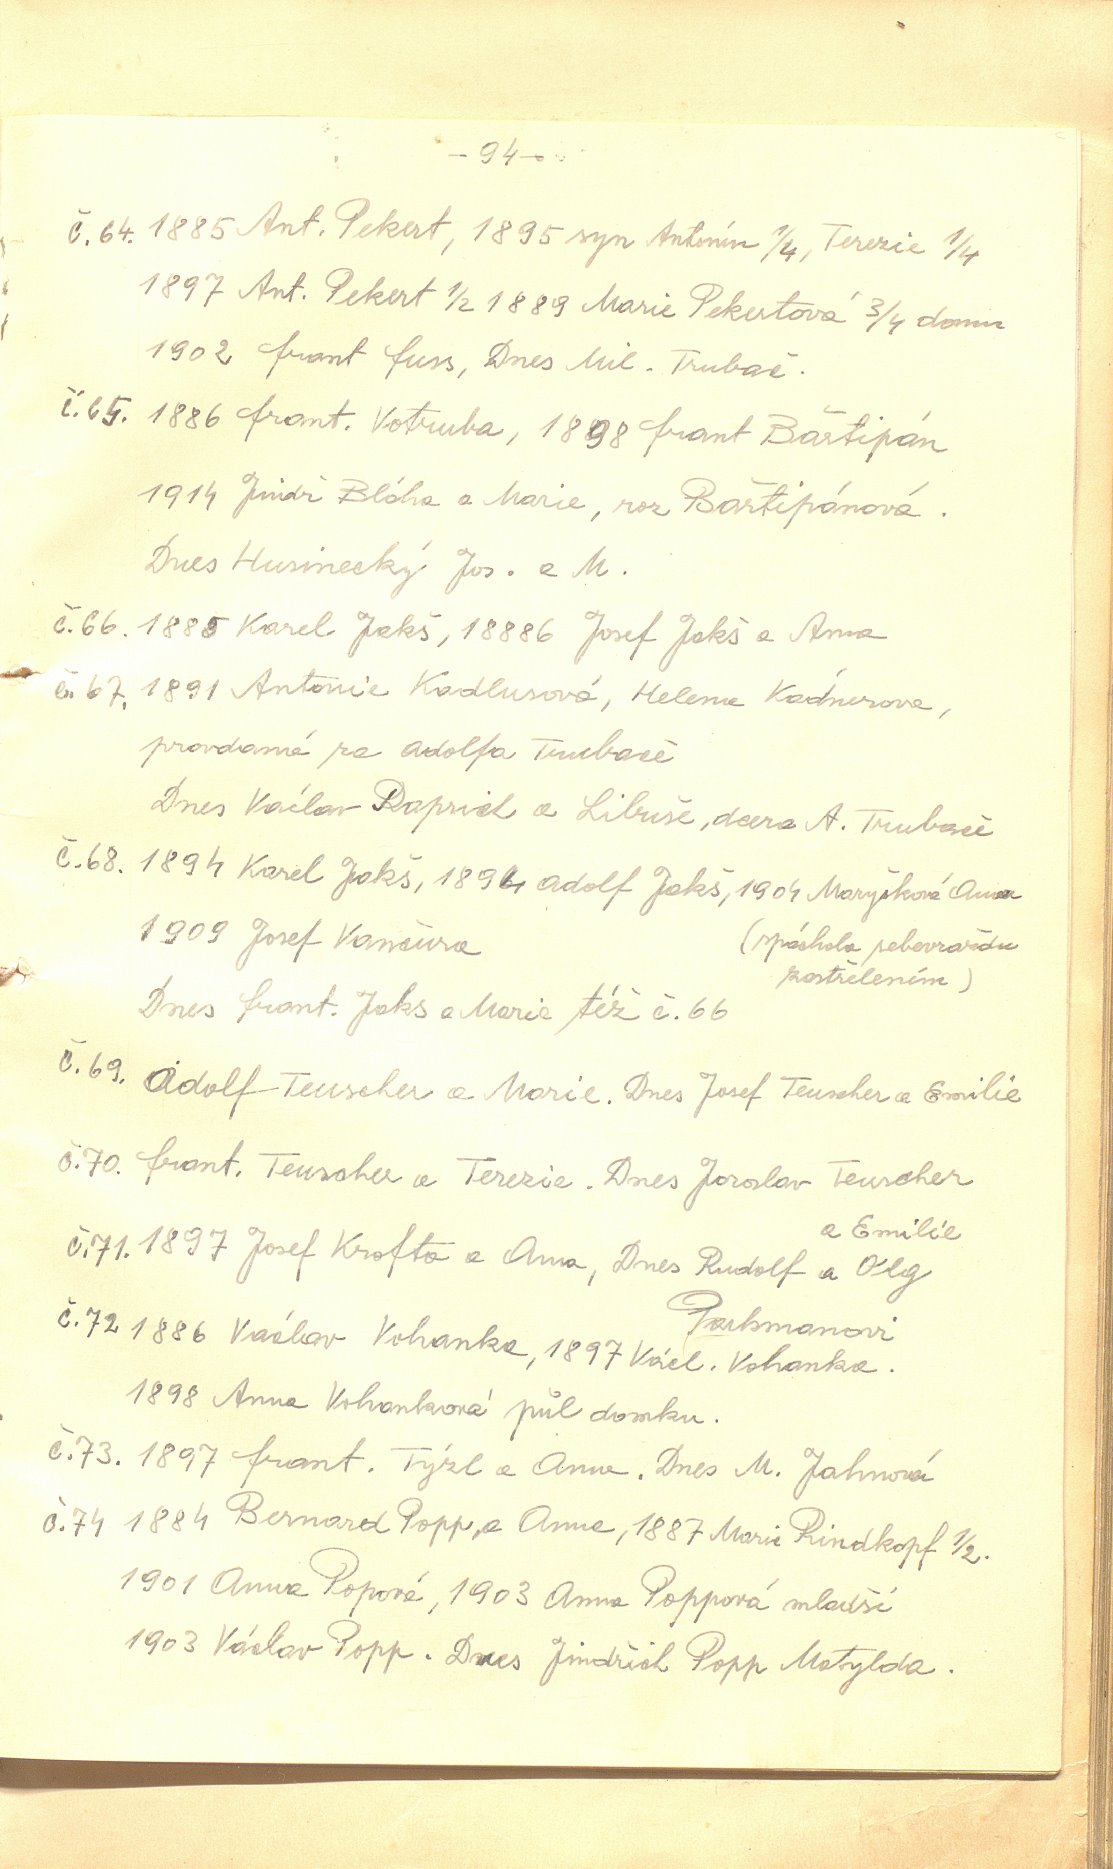 - 94 -
č. 64. 1885 Ant. Pekert, 1895 syn Antonín 1/4, Terezie 1/4
1897 Ant. Pekert 1/2 1889 Marie Pekertová 3/4 domu
1902 frant fuss, Dnes Mil. Trubač.
č. 65. 1886 frant. Votruba, 1898 frant Bärtipán
1914 Jindř Bláha a Marie, roz Bärtipánová.
Dnes Husinecký Jos. a M.
č. 66. 1885 Karel Jakš, 18886 Josef Jakš a Anna
č. 67. 1891 Antonie Kadlusová, Helena Kadnerova,
provdaná za adolfa Trubače
Dnes Václav Raprich a Libuše, dcera A. Trubače
č. 68. 1894 Karel Jakš, 1894 adolf Jakš, 1904 Maryšková Anna
1909 Josef Vančura (spáchala sebevraždu
zastřelením)
Dnes frant. Jaks a Marie též č. 66
č. 69. Adolf Teuscher a Marie. Dnes Josef Teuscher a Emilie
č. 70. frant. Teuscher a Terezie. Dnes Jaroslav Teuscher
a Emilie
č. 71. 1897 Josef Krofta a Anna, Dnes Rudolf a Olg
Parkmanovi
č. 72 1886 Václav Vohanka, 1897 Václ. Vohanka.
1898 Anna Vohanková půl domku.
č. 73. 1897 frant. Týzl a Anna. Dnes M. Jahnová
č. 74 1884 Bernard Popp, a Anna, 1887 Marie Rindkopf 1/2.
1901 Anna Popová, 1903 Anna Poppová mladší
1903 Václav Popp. Dnes Jindřich Popp Matylda.